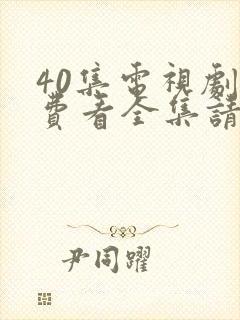 40集電視劇
費看全集請
尹同躍